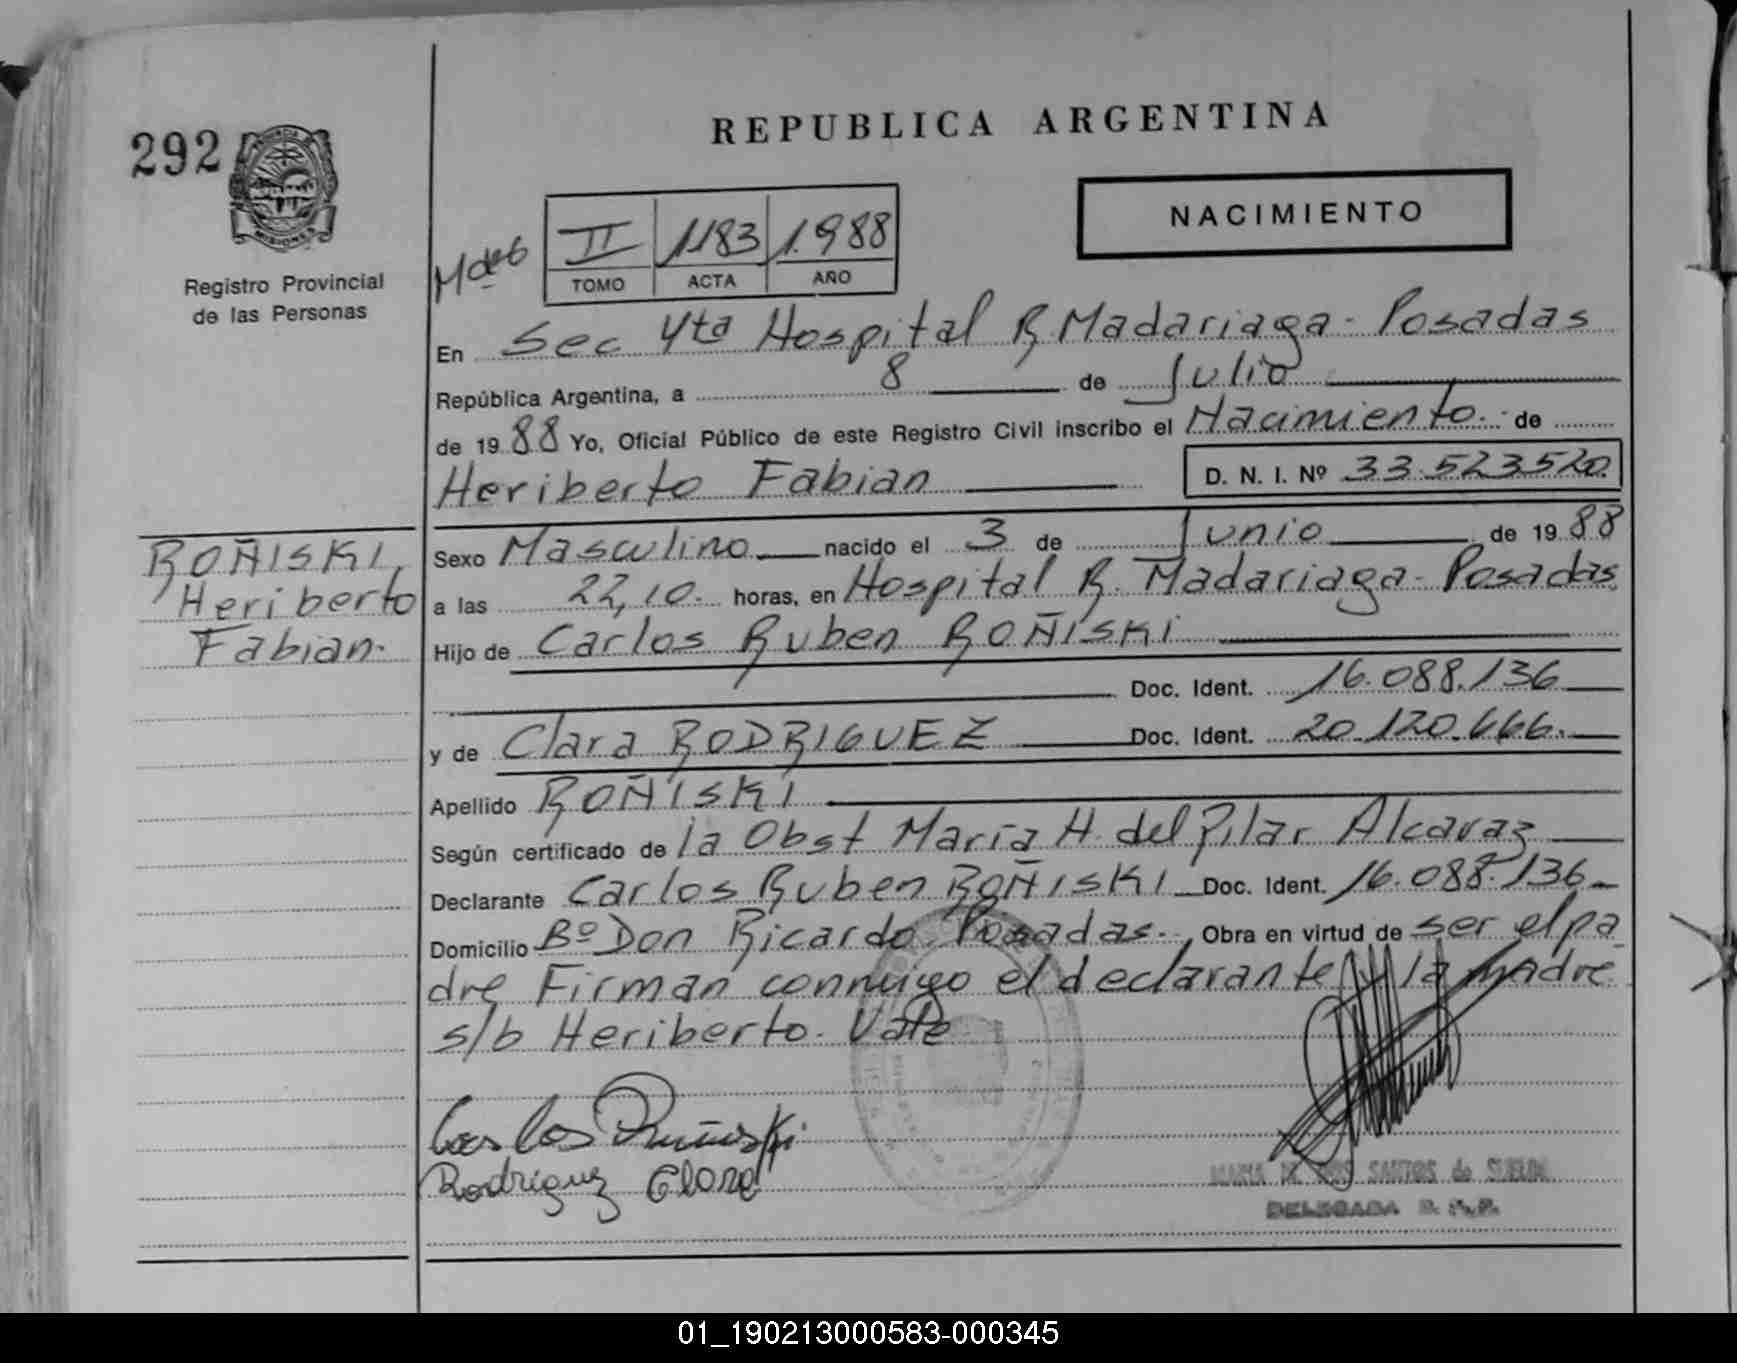 292
REPUBLICA ARGENTINA
NACIMIENTO
MISIONES
Registro Provincial
de las Personas
II 1183 1.988
TOMO ACTA AÑO
En Sec 4ta Hospital R Madariaga - Posadas
República Argentina, a 8 de Julio
de 1988 Yo, Oficial Público de este Registro Civil inscribo el Nacimiento de
Heriberto Fabian D. N. I. Nº 33.523.520
ROÑISKI
Heriberto
Fabian.
Sexo Masculino nacido el 3 de Junio de 1988
a las 22,10. horas, en Hospital R. Madariaga - Posadas
Hijo de Carlos Ruben ROÑISKI
Doc. Ident. 16.088.136
y de Clara RODRIGUEZ Doc. Ident. 20.120.666.
Apellido ROÑISKI
Según certificado de la Obst María H. del Pilar Alcaraz
Declarante Carlos Ruben ROÑISKI Doc. Ident. 16.088.136
Domicilio Bº Don Ricardo Posadas. Obra en virtud de ser el pa
dre Firman conmigo el declarante y la madre
s/b Heriberto. Vale
Carlos Ruñiski
Rodriguez Clara
MARIA SANTOS de
DELEGADA
01_190213000583-000345